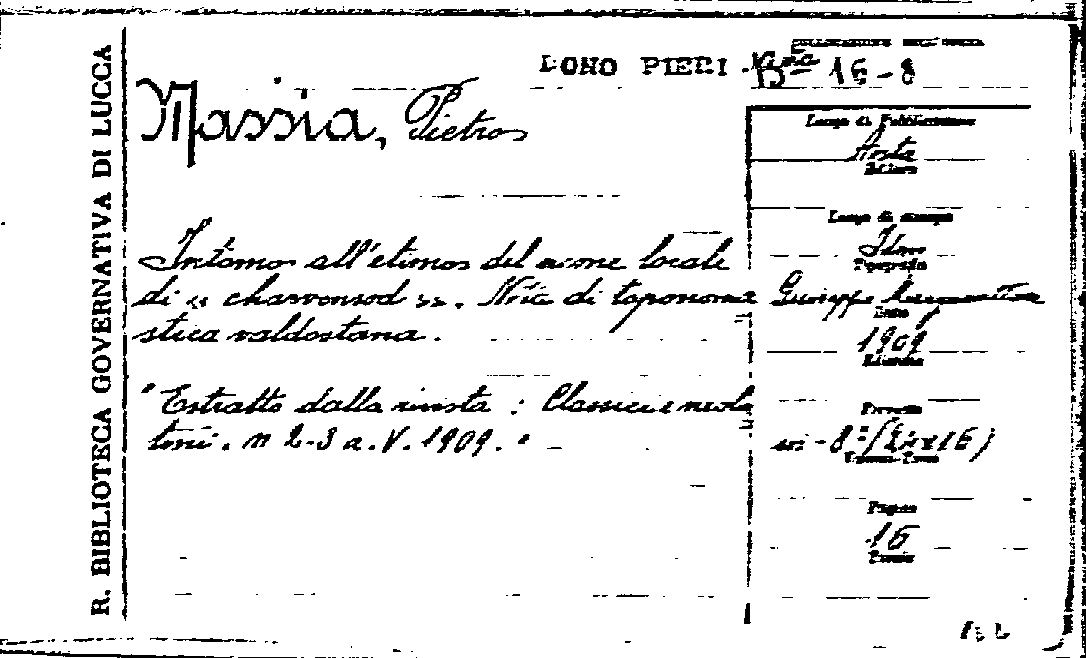 R. BIBLIOTECA GOVERNATIVA DI LUCCA
DONO PIERI Bta 16-8
Massia, Pietro
Luogo di Pubblicazione
Aosta
Editore
Luogo di stampa
Idem
Tipografia
Intorno all'etimo del nome locale
di « charvensod ». Nota di toponoma
Giuseppe
stica valdostana.
Data
1909
Edizione
"Estratto dalla rivista: Classici e neola
Formato
tini. n 2-3 a. V. 1909."
in-8° (24x16)
Pagine
16